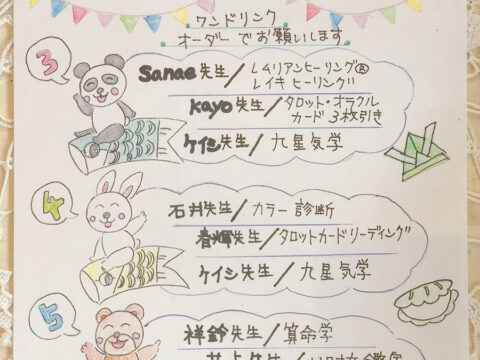 ワンドリンク
オーダーでお願いします
3
Sanae先生/レムリアンヒーリング®
レイキヒーリング
kayo先生/タロット・オラクル
カード3枚引き
ケイシ先生/九星気学
4
石井先生/カラー診断
春輝先生/タロットカードリーディング
ケイシ先生/九星気学
5
祥鈴先生/算命学